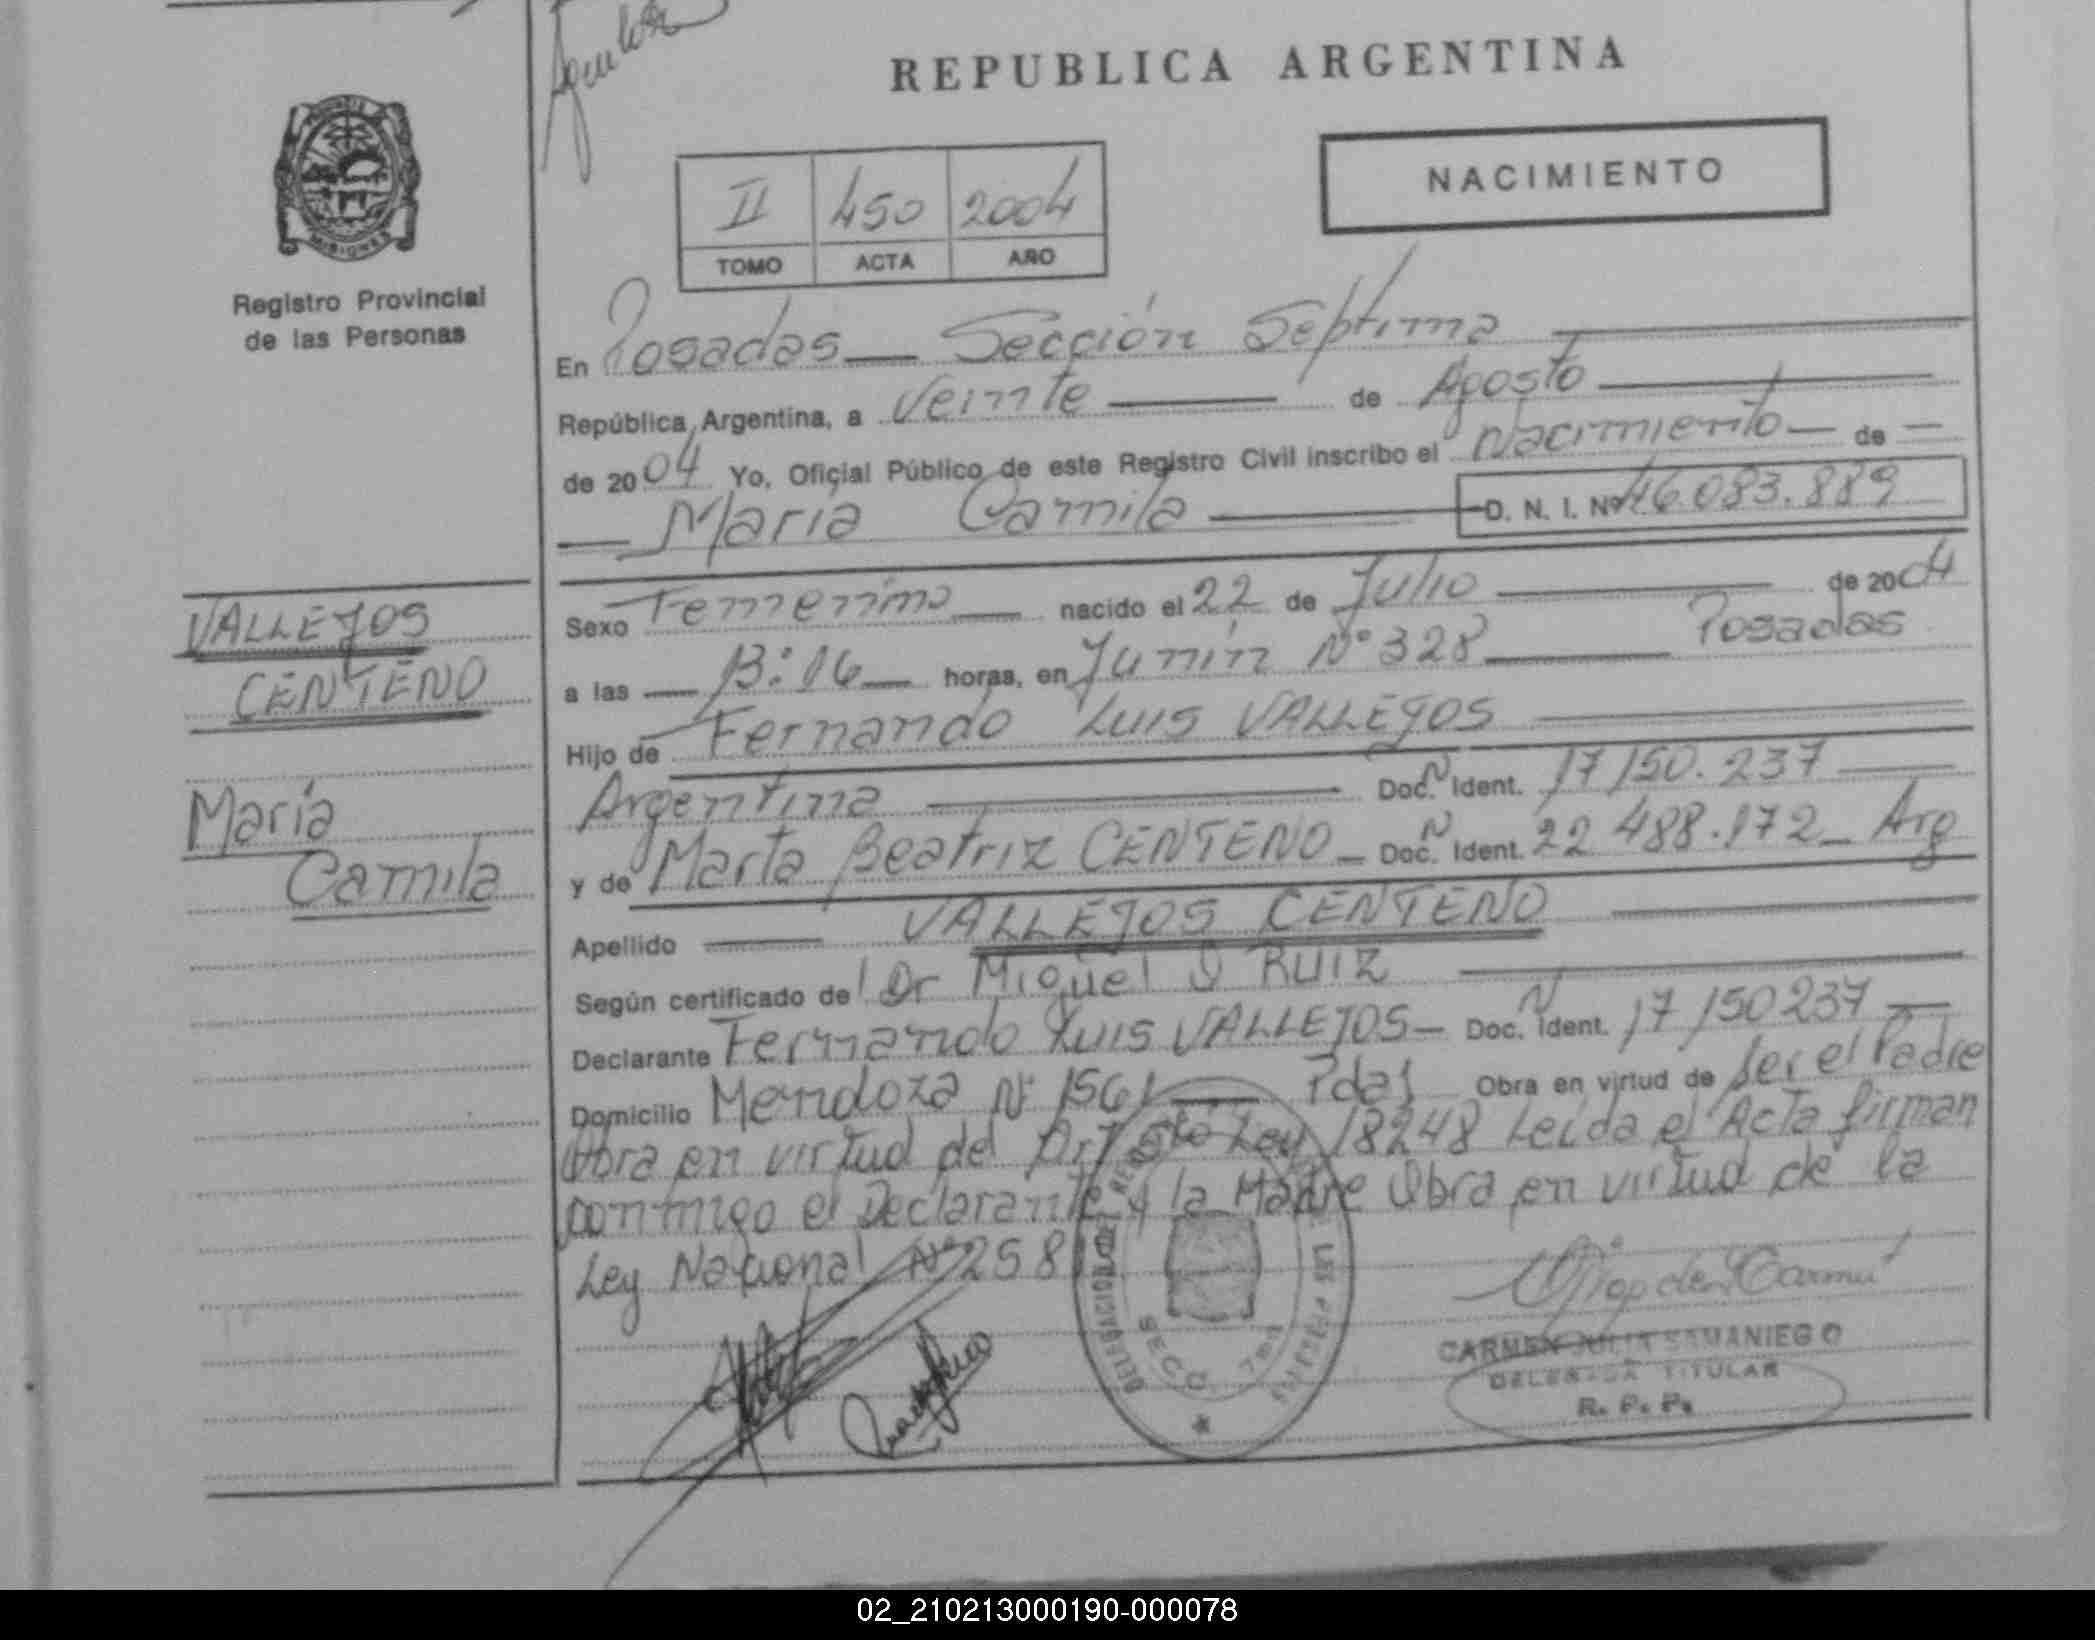 REPUBLICA ARGENTINA
NACIMIENTO
II 450 2004
TOMO ACTA AÑO
MISIONES
Registro Provincial
de las Personas
VALLEJOS
CENTENO
María
Camila
En Posadas — Sección Septima
República Argentina, a Veinte de Agosto
de 2004 Yo, Oficial Público de este Registro Civil inscribo el Nacimiento — de —
María Camila D. N. I. Nº 46.083.889
Sexo Femenino nacido el 22 de Julio de 2004
a las 13:16 horas, en Junín Nº 328 Posadas
Hijo de Fernando Luis VALLEJOS
Argentina Doc. N Ident. 17 150.237
y de Marta Beatriz CENTENO — Doc. N Ident. 22 488.172 — Arg
Apellido VALLEJOS CENTENO
Según certificado del Dr Miguel RUIZ
Declarante Fernando Luis VALLEJOS — Doc. N Ident. 17 150237 —
Domicilio Mendoza Nº 1561 — Pdas Obra en virtud de Ser el Padre
Obra en virtud del Art 5to Ley 18248 Leida el Acta firman
conmigo el Declarante y la Madre Obra en virtud de la
Ley Nacional Nº 258
SECC. 7ma
CARMEN JULIA SAMANIEGO
DELEGADA TITULAR
R. P. P.
02_210213000190-000078